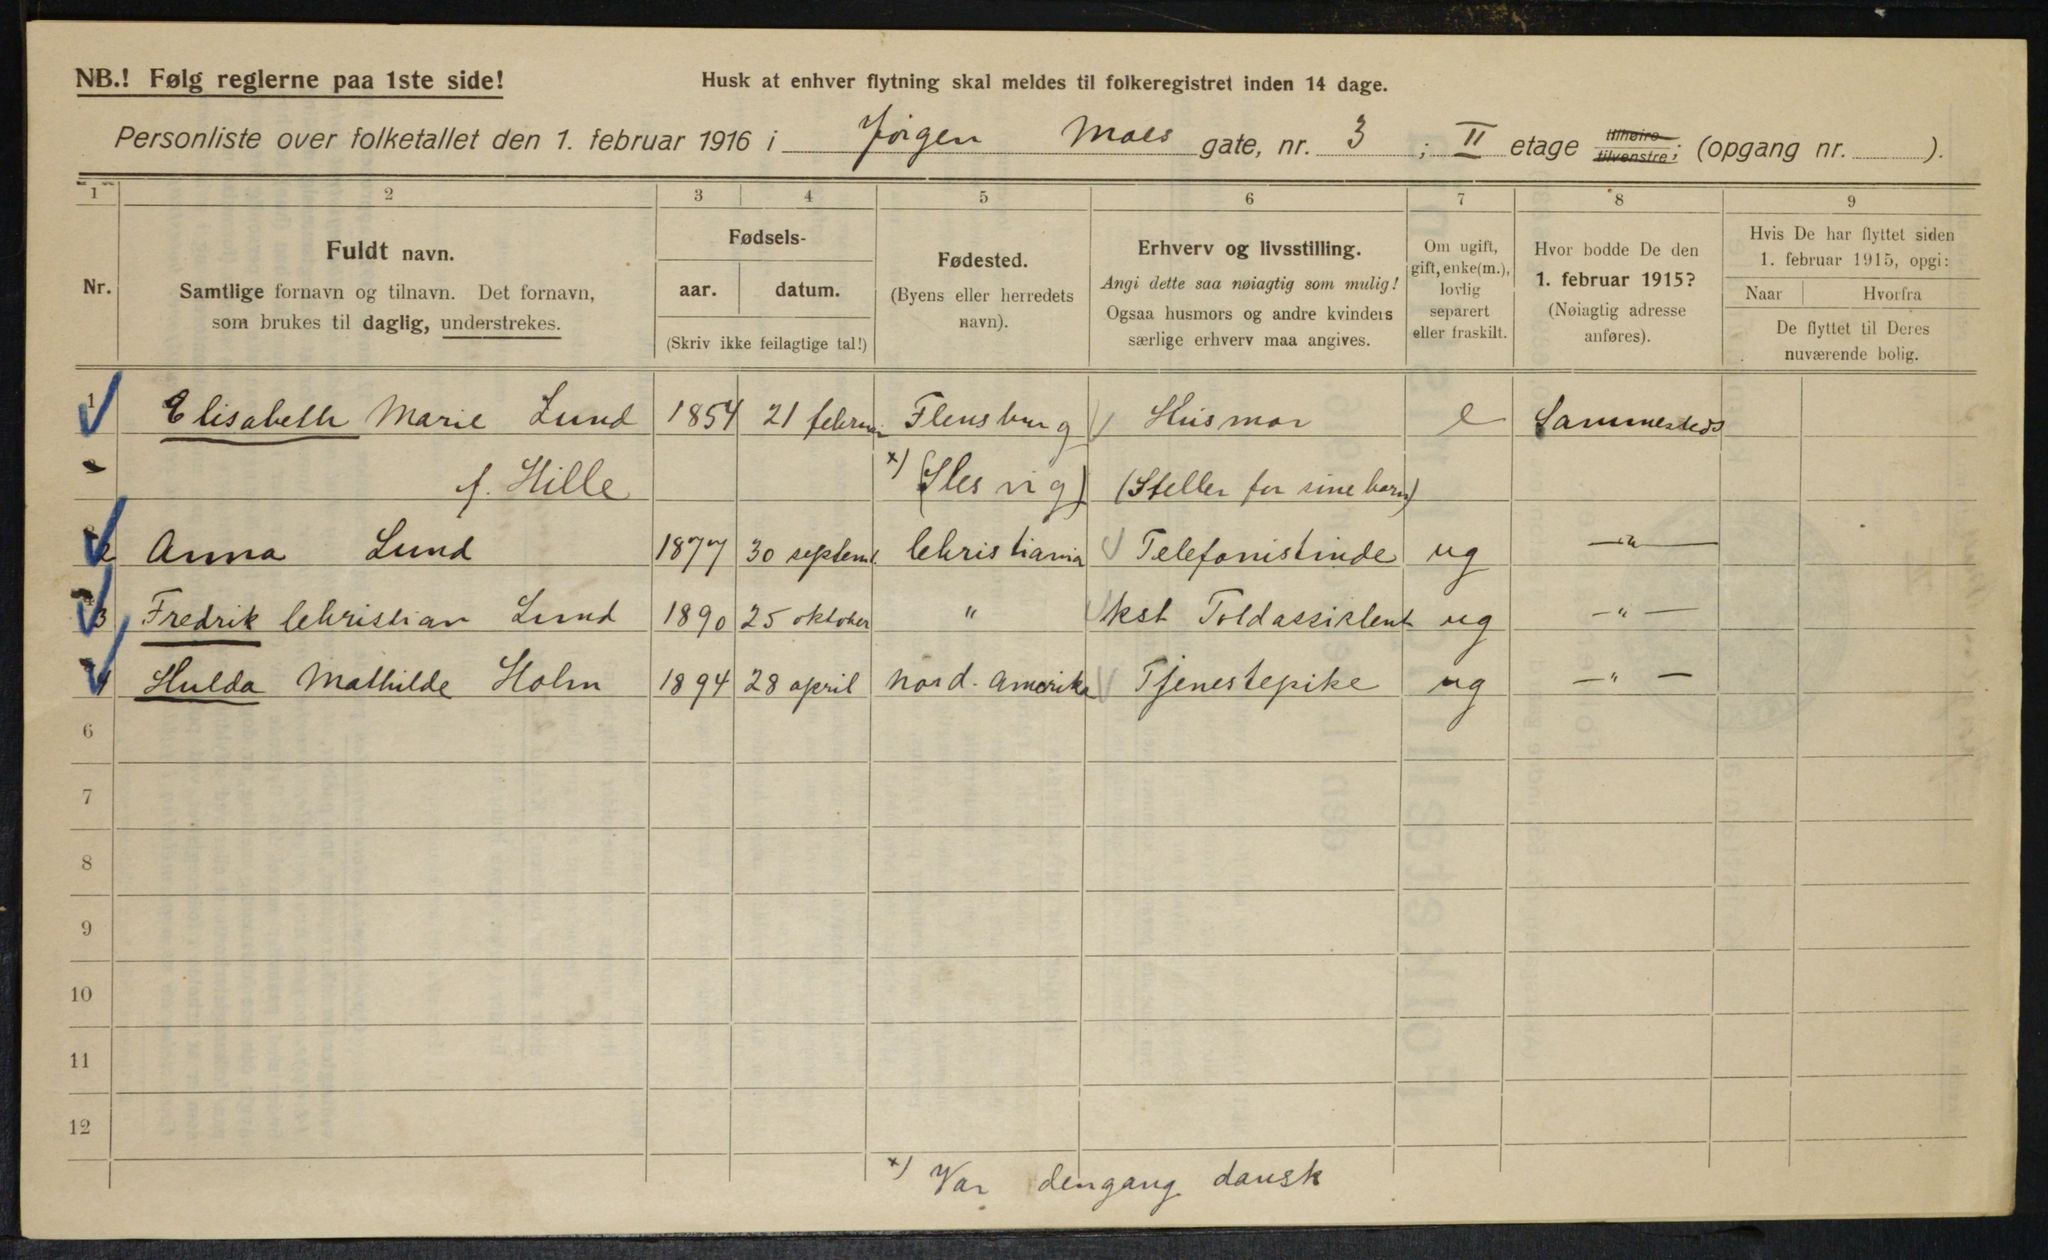 NB.! Følg reglerne paa 1ste side!
Husk at enhver flytning skal meldes til folkeregistret inden 14 dage.
Personliste over folketallet den 1. februar 1916 i Jörgen Moes gate, nr. 3 ; II etage tilhøire tilvenstre; (opgang nr. ).
1 2 3 4 5 6 7 8 9
Nr.
Fuldt navn.
Samtlige fornavn og tilnavn. Det fornavn,
som brukes til daglig, understrekes.
Fødsels-
aar. datum.
(Skriv ikke feilagtige tal!)
Fødested.
(Byens eller herredets
navn).
Erhverv og livsstilling.
Angi dette saa nøiagtig som mulig!
Ogsaa husmors og andre kvinders
særlige erhverv maa angives.
Om ugift,
gift, enke(m.),
lovlig
separert
eller fraskilt.
Hvor bodde De den
1. februar 1915?
(Nøiagtig adresse
anføres).
Hvis De har flyttet siden
1. februar 1915, opgi:
Naar Hvorfra
De flyttet til Deres
nuværende bolig.
1 Elisabeth Marie Lund 1854 21 februar Flensburg Husmor e Sammesteds
f. Hille x) (Slesvig) (Steller for sine barn)
2 Anna Lund 1877 30 septemb. Christiania Telefonistinde ug —"—
3 Fredrik Christian Lund 1890 25 oktober " kst Toldassistent ug —"—
4 Hulda Mathilde Holm 1894 28 april Nord-Amerika Tjenestepike ug —"—
6
7
8
9
10
11
12
x) Var dengang dansk